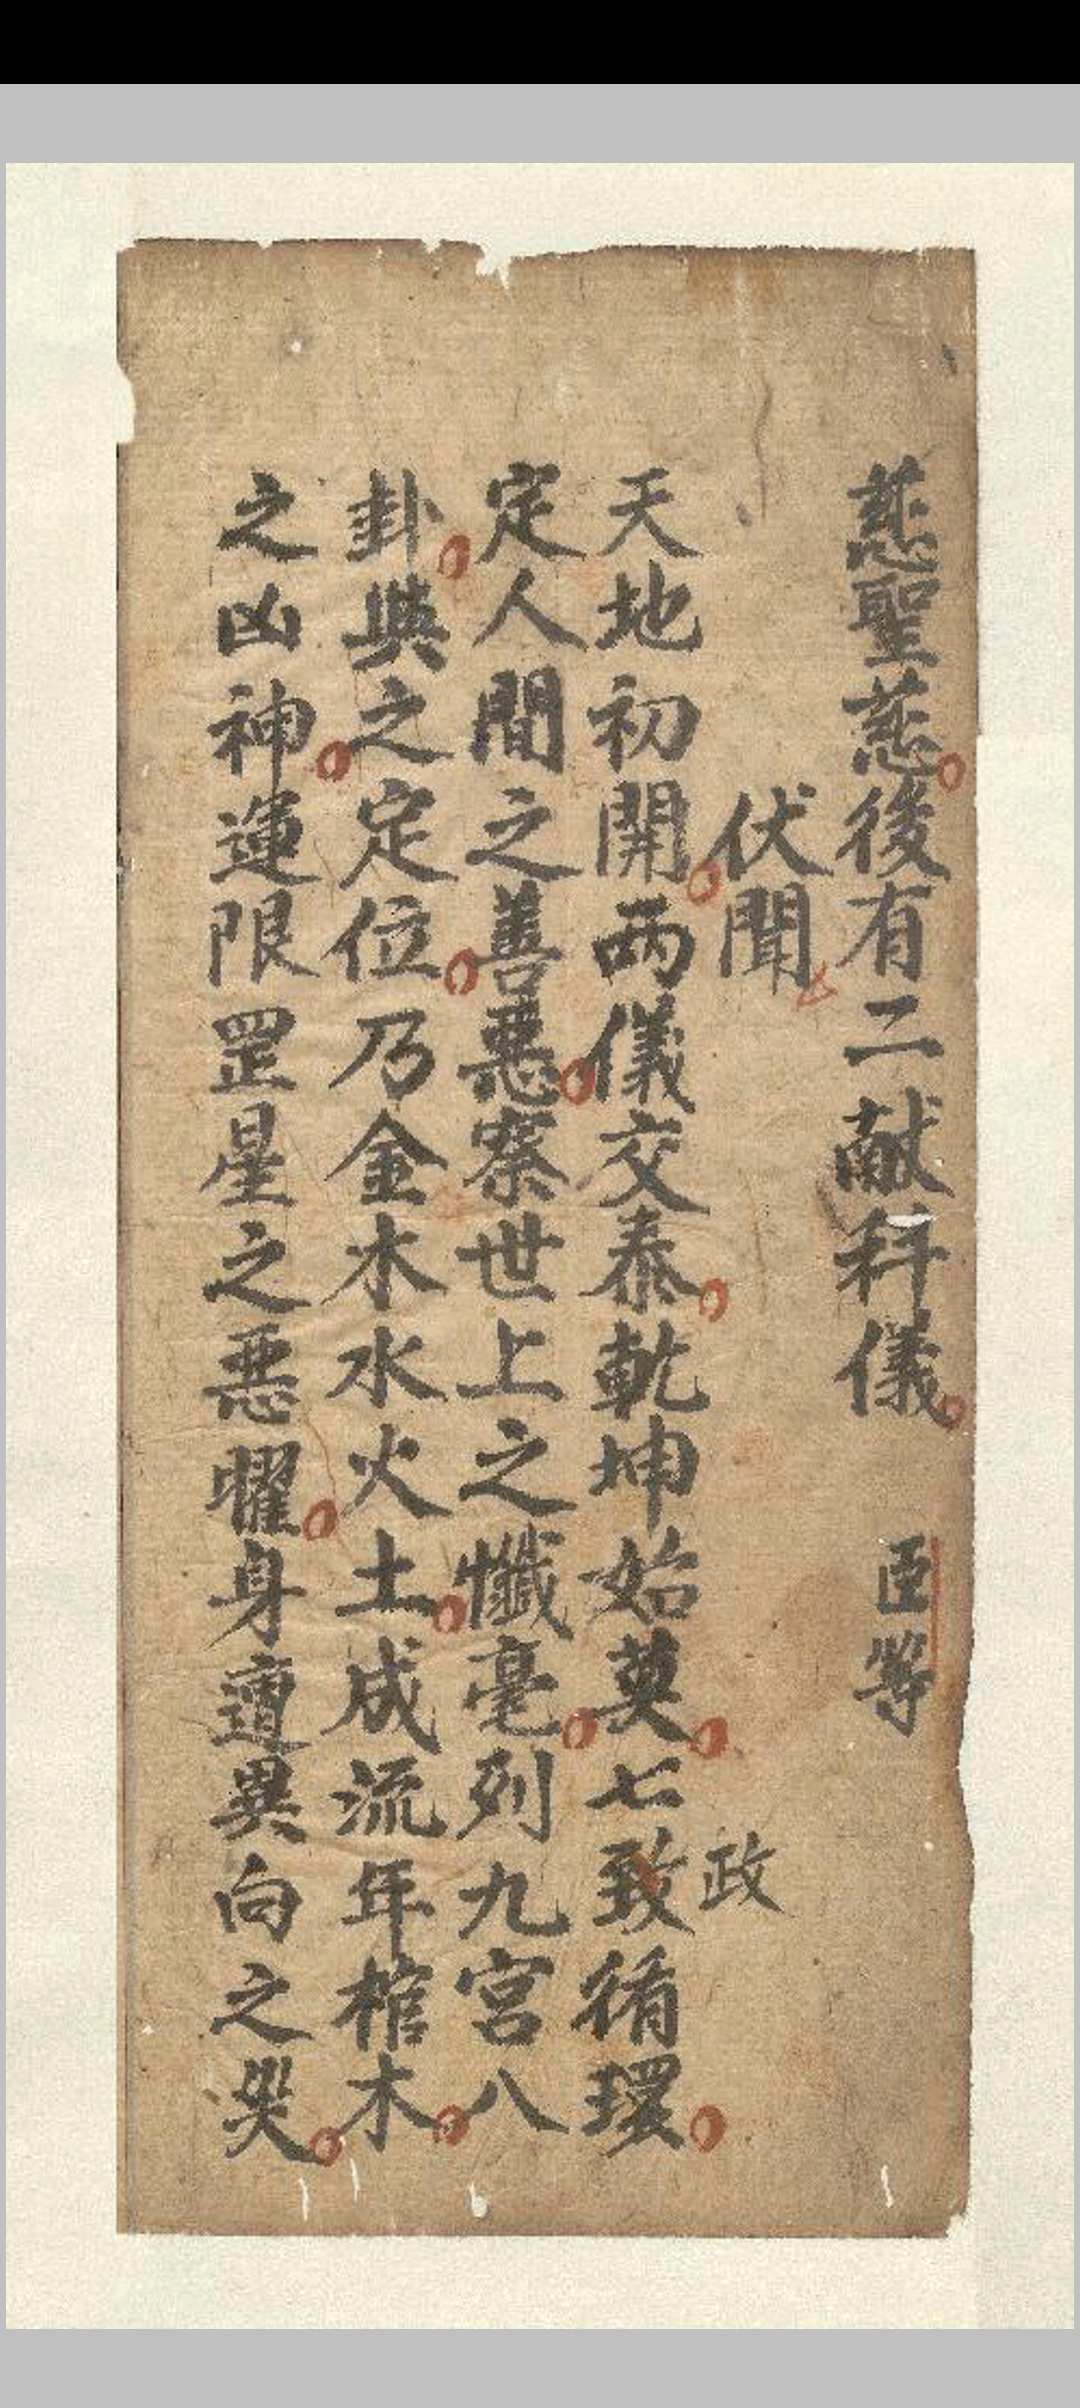 慈聖慈後有二献科儀 臣等
伏聞
天地初開两儀交泰乾坤始奠七致循環
政
定人間之善惡察世上之懺毫列九宮八
卦與之定位乃金木水火土成流年棺木
之凶神運限罡星之恶曜身遭異向之